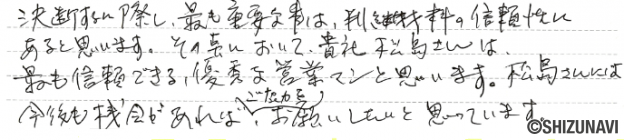 決断するに際し、最も重要な事は、判断材料の信頼性に
あると思います。その点において、貴社 松島さんは、
最も信頼できる、優秀な営業マンと思います。松島さんには
今後も機会があれば、ご協力をお願いしたいと思っています。
©SHIZUNAVI